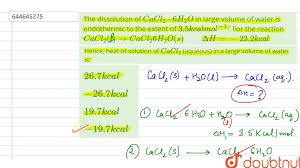 644645275
The dissolution of CaCl₂ · 6H₂O in large volume of water is
endothermic to the extent of 3.5kcalmol⁻¹. For the reaction
ΔH = −23.2kcal
Hence, heat of solution of CaCl₂ (aqueous) in a large volume of
water is
26.7kcal
−26.7kcal
19.7kcal
−19.7kcal
CaCl₂(s) + H₂O(l) → CaCl₂(aq.)
ΔH = ?
1) CaCl₂·6H₂O + H₂O → CaCl₂(aq.)
(l)
ΔH₁ = 3.5 Kcal/mol.
2) CaCl₂(s) → CaCl₂·6H₂O
doubtnut